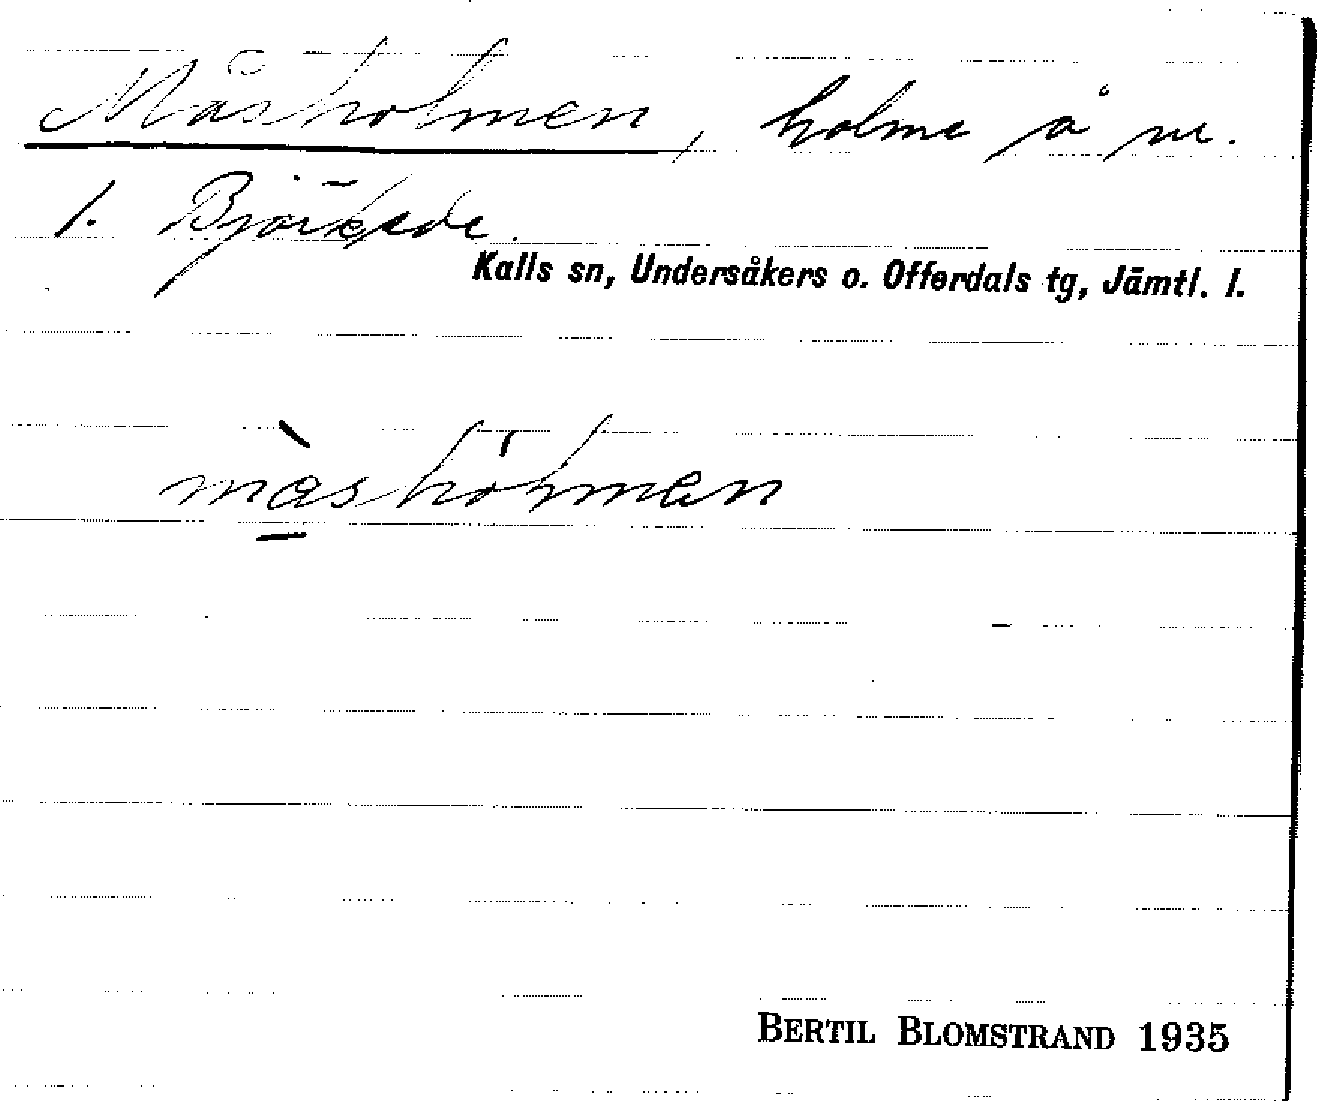 Måsholmen, holme å nr.
1. Björkede.
Kalls sn, Undersåkers o. Offerdals tg, Jämtl. l.
màshòlmɘn
BERTIL BLOMSTRAND 1935